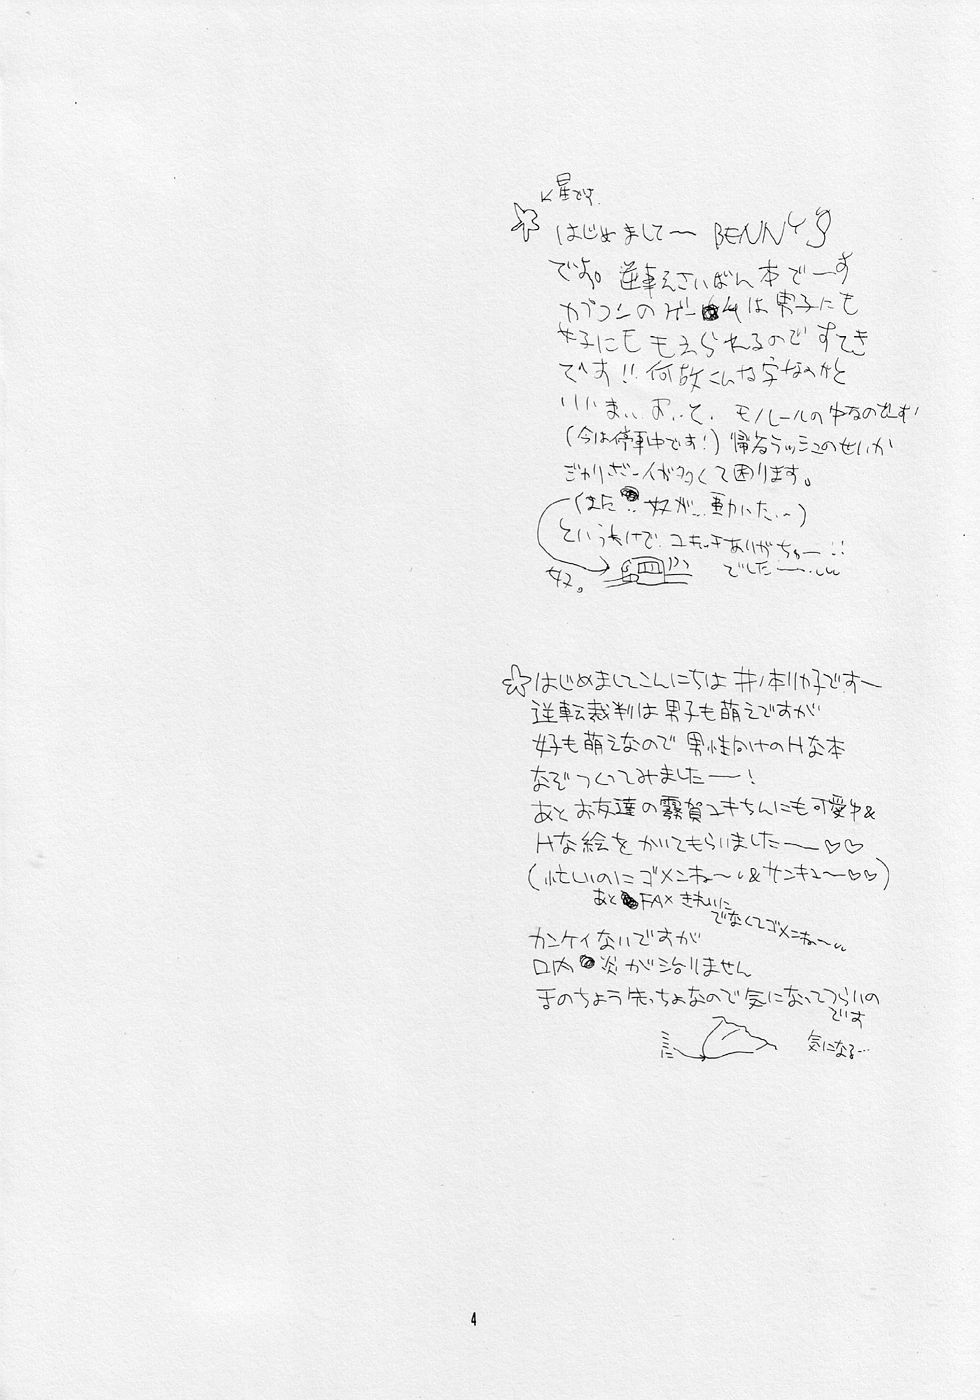 星です。
はじめまして〜 BENNY'S
です。逆車えさいばん本でーす
カプコンのゲームは男子にも
女子にももえられるのですてき
です!!何故こんな字なのかと
いいますと、モノレールの中なのです!
(今は停車中です!)帰省ラッシュのせいか
人が多くて困ります。
(また 奴が… 動いた…)
というわけで、ユキ ありがちゅー!!
でしたー
奴。
はじめましてこんにちは 井ノ本リカ子ですー
逆転裁判は男子も萌えですが
女子も萌えなので 男性向けのHな本
なぞつくってみましたー!
あとお友達の霧賀ユキちんにも可愛ゆ&
Hな絵をかいてもらいましたー♡♡
(忙しいのにゴメンね〜&サンキュー♡♡)
あと FAX きれいに
でなくてゴメンね〜
カンケイないですが
口内炎が治りません
舌のちょう先っちょなので気になってつらいの
です
気になる…
4